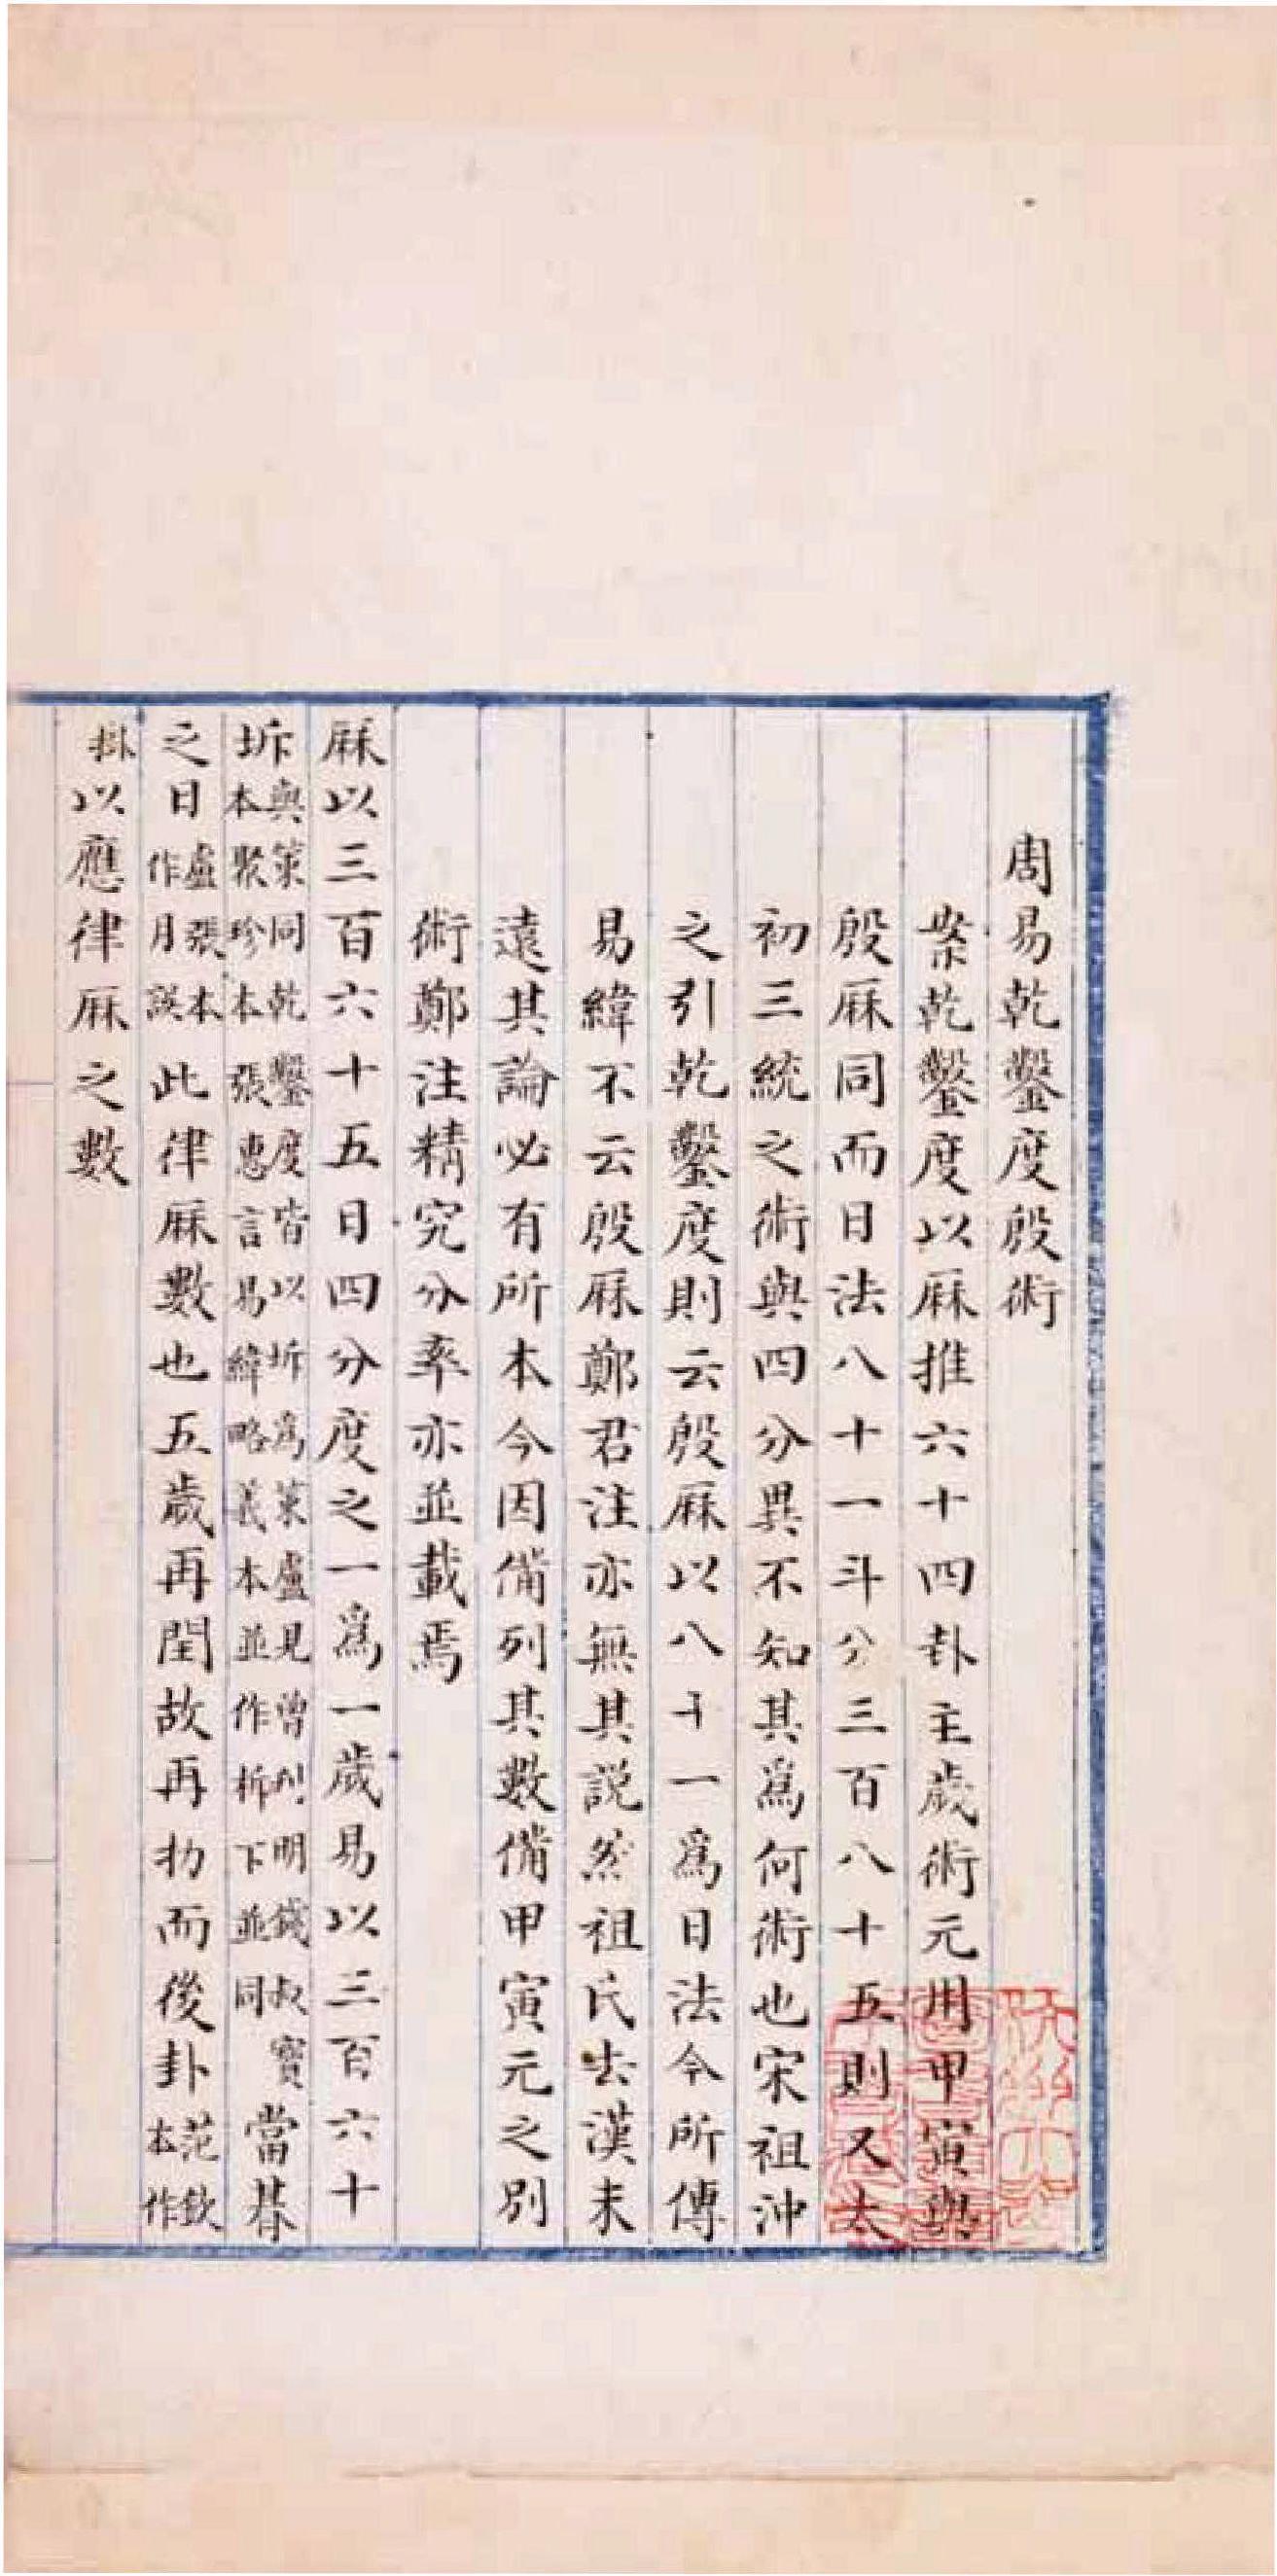 周易乾鑿度殷術
案乾鑿度以厤推六十四卦主歲術元用甲寅與
殷厤同而日法八十一斗分三百八十五則又太
初三統之術與四分異不知其爲何術也宋祖沖
之引乾鑿度則云殷厤以八十一爲日法今所傳
易緯不云殷厤鄭君注亦無其説然祖氏去漢未
遠其論必有所本今因備列其數備甲寅元之別
術鄭注精究分率亦並載焉
厤以三百六十五日四分度之一爲一歲易以三百六十
坼與策同乾鑿度皆以坼爲策盧見曾刊明錢叔寶本聚珍本張惠言易緯略義本並作析下並同當朞
之日盧張本作月誤此律厤數也五歲再閏故再扐而後卦范欽本作
掛以應律厤之數